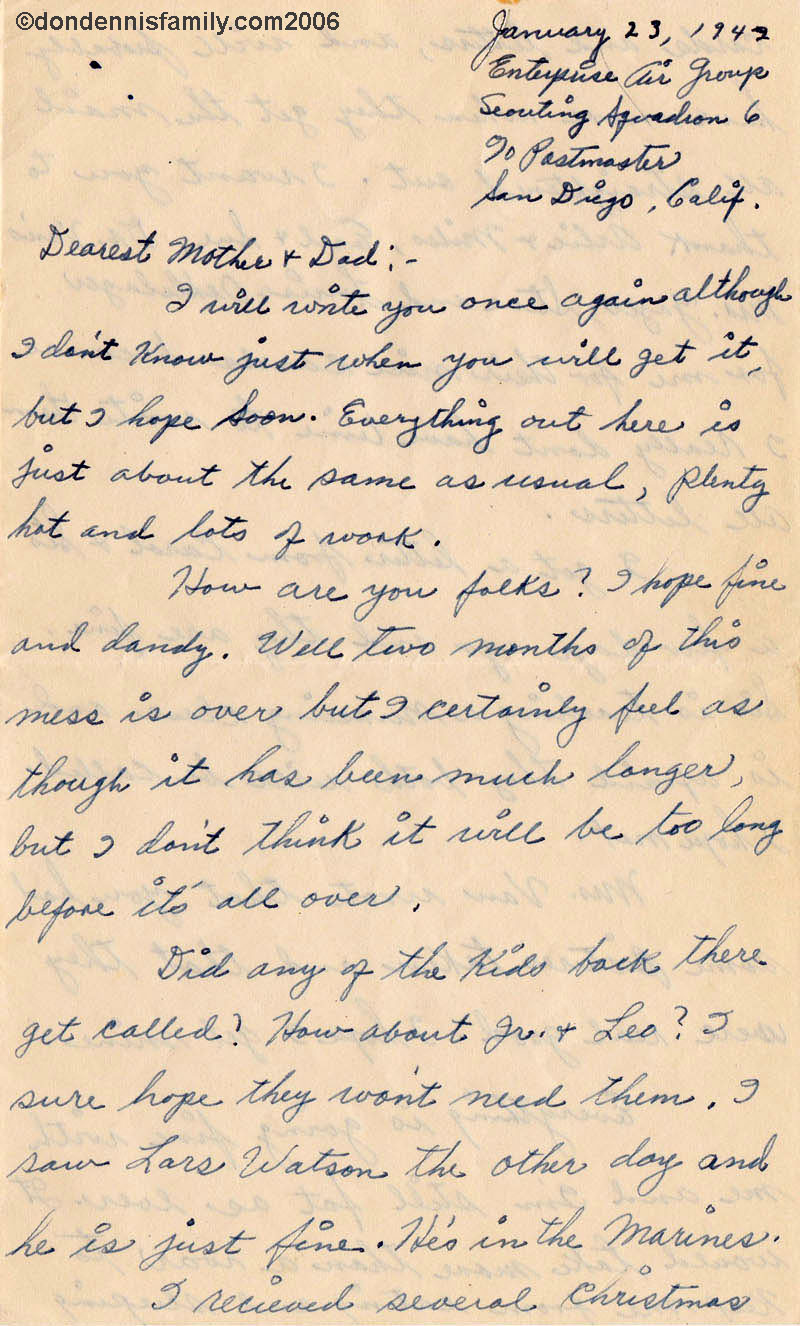 ©dondennisfamily.com2006
January 23, 1942
Enterprise Air Group
Scouting Squadron 6
c/o Postmaster
San Diego, Calif.
Dearest Mother & Dad:-
I will write you once again although
I don't know just when you will get it,
but I hope soon. Everything out here is
just about the same as usual, plenty
hot and lots of work.
How are you folks? I hope fine
and dandy. Well two months of this
mess is over but I certainly feel as
though it has been much longer,
but I don't think it will be too long
before it's all over.
Did any of the kids back there
get called? How about Jr. & Leo? I
sure hope they won't need them. I
saw Lars Watson the other day and
he is just fine. He's in the Marines.
I recieved several Christmas